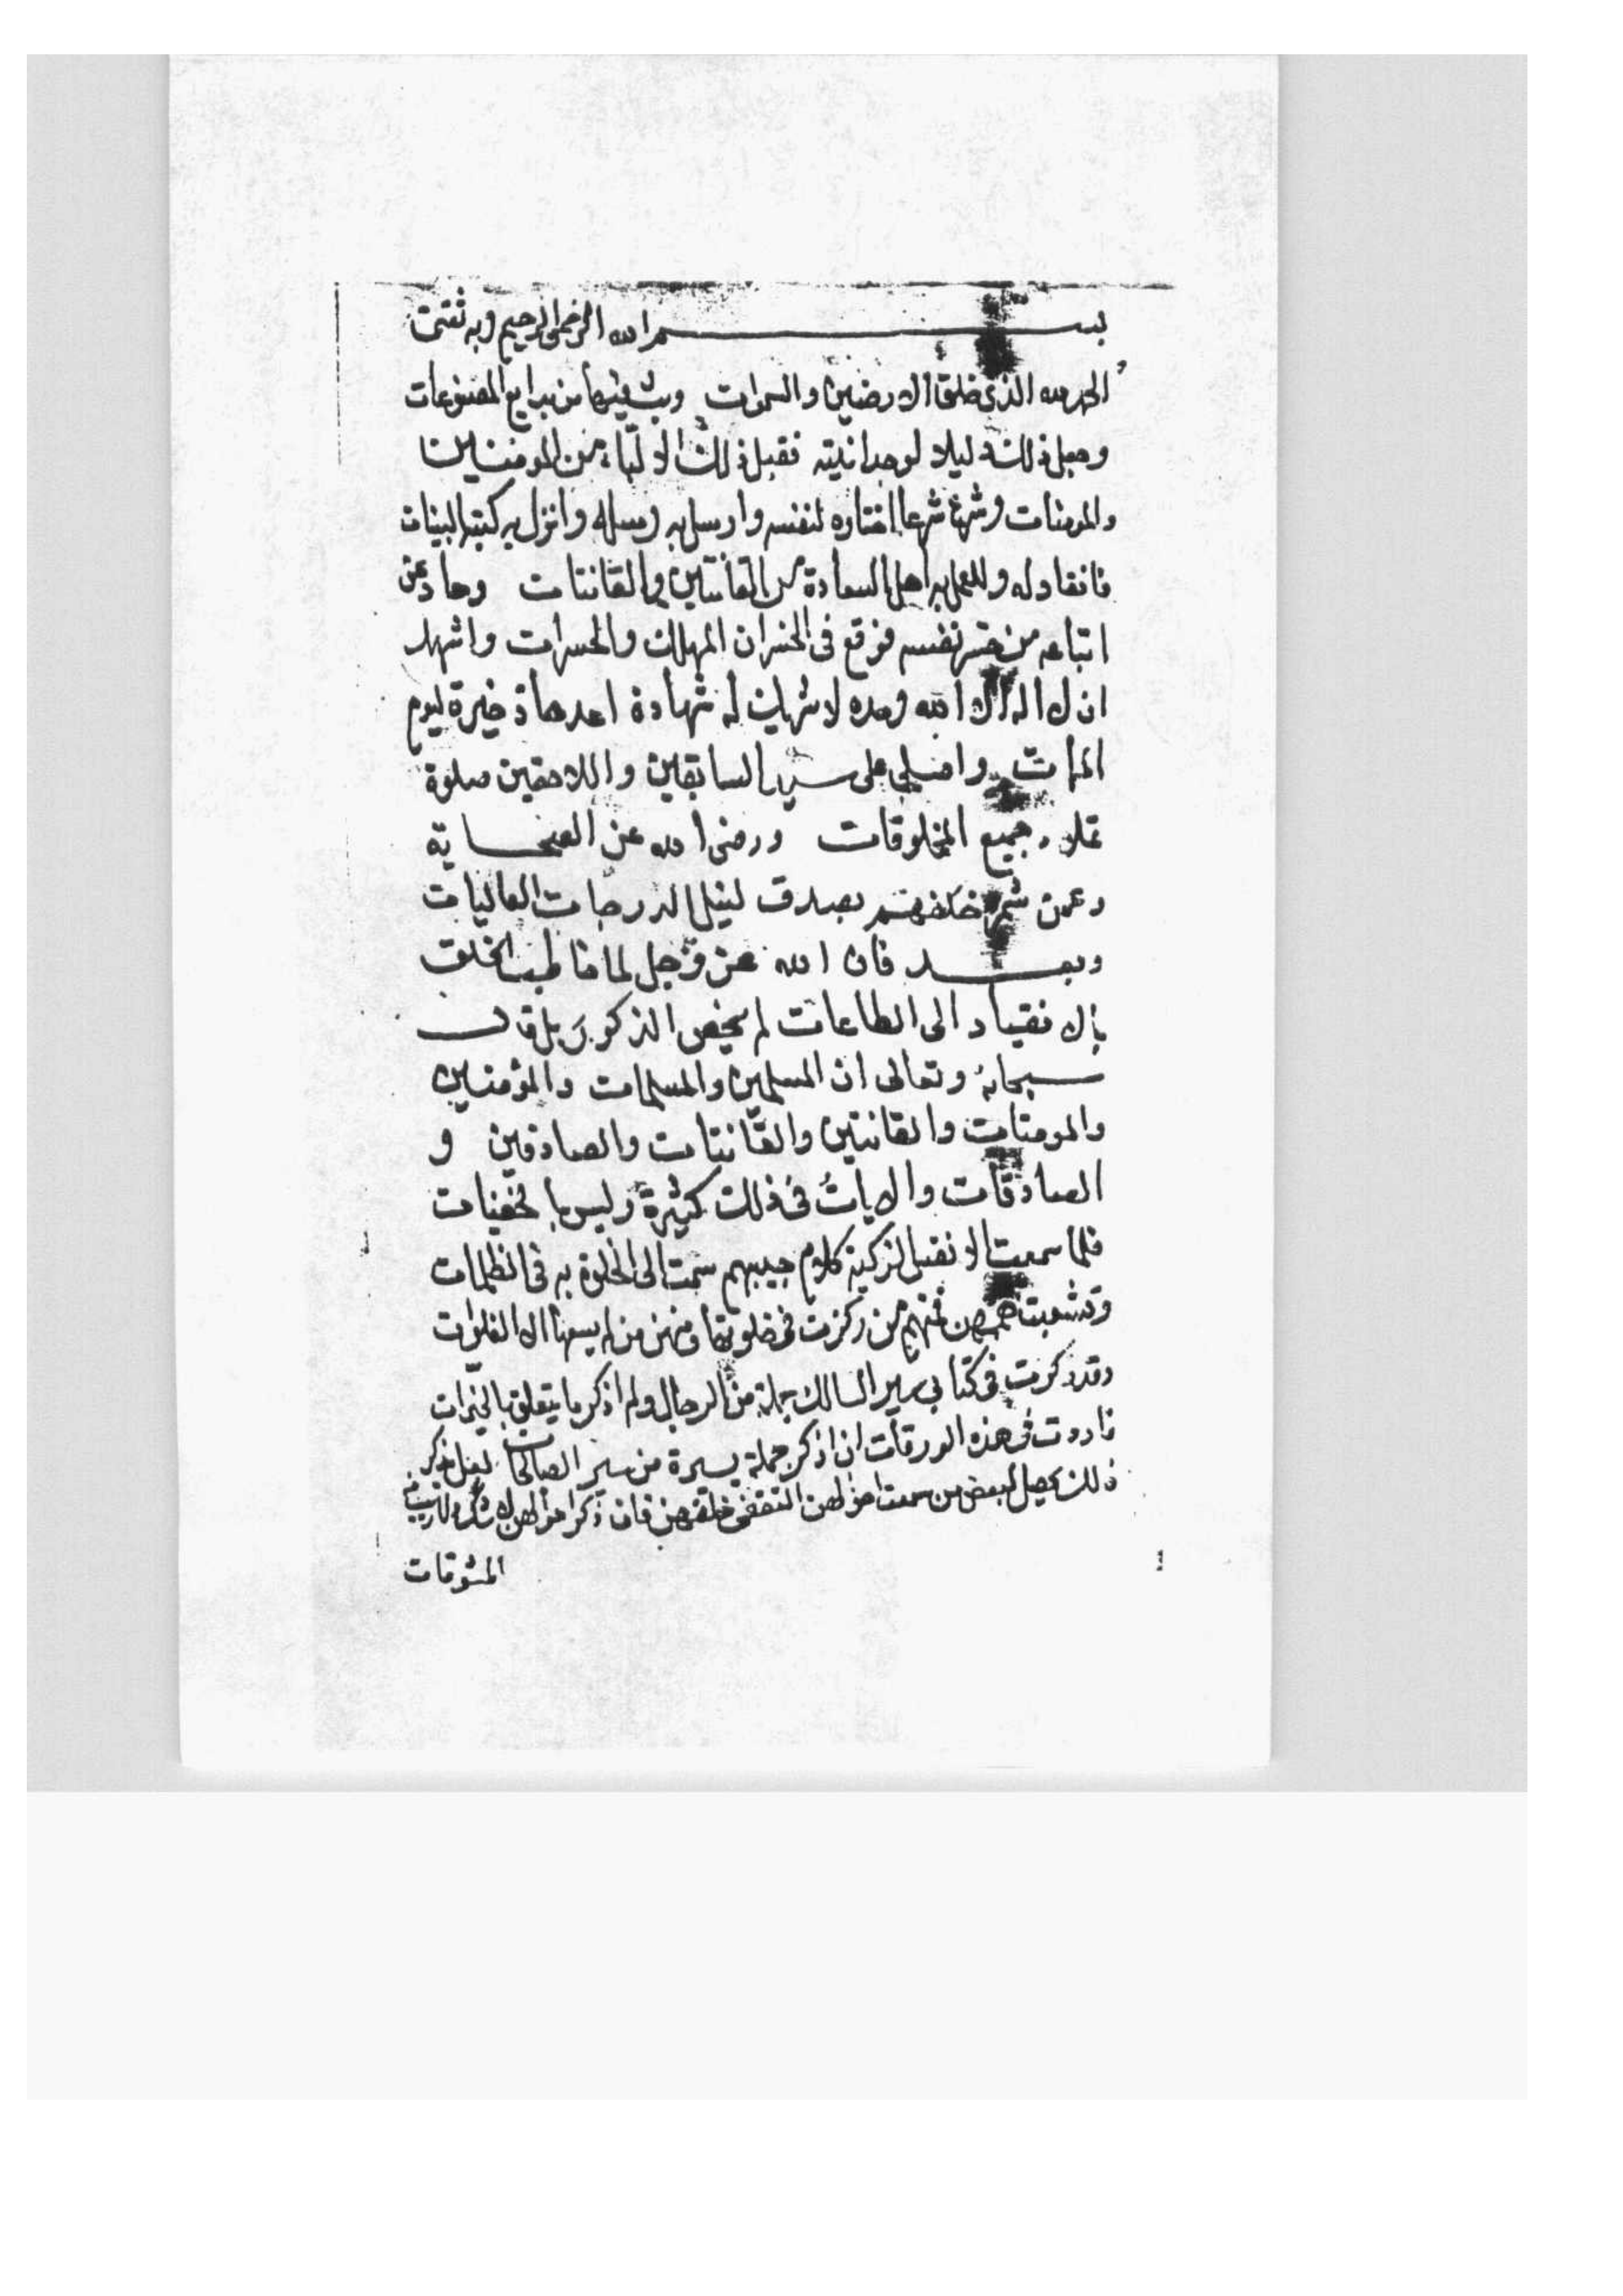 بسم الله الرحمن الرحيم وبه ثقتي
الحمد لله الذي خلق الارضين والسموات وبث فيها من بدايع المصنوعات
وجعل ذلك دليلا لوحدانيته فقبل ذلك الالبّاء من المومنين
والمومنات وشرع شرعا اختاره لنفسه وارسل به رسله وانزل به كتبه البينات
فانقاد له وللعمل به اهل السعادة من القانتين والقانتات وحاد عن
اتباعه من خسر نفسه فوقع في الخسران المهلك والحسرات واشهد
ان لا اله الا الله وحده لا شريك له شهادة اعدها ذخيرة ليوم
الممات واصلي على سيد السابقين واللاحقين صلوة
تملاء جميع المخلوقات ورضى الله عن الصحابة
وعمن شمر خلفهم بصدق لنيل الدرجات العاليات
وبعد فان الله عز وجل لما خاطب الخلق
بالانقياد الى الطاعات لم يخص الذكور بل قال
سبحانه وتعالى ان المسلمين والمسلمات والمؤمنين
والمومنات والقانتين والقانتات والصادقين و
الصادقات والايات في ذلك كثيرة وليس بالخفيات
فلما سمعت الانفس الزكية كلام حبيبهم سمت الى الخلوة به في الظلمات
وتشعبت هممهن فمنهم من ركزت في خلوتها ومنهن من لم يسعها الا الفلوات
وقد ذكرت في كتابي سير السالك جملة من الرجال ولم اذكر ما يتعلق بالخيرات
فاردت في هذه الورقات ان اذكر جملة يسيرة من سير الصالحات لعل ذكر
ذلك يحصل لبعض من سمعت احوالهن التقفي خلفهن فان ذكر احوالهن
المشوقات